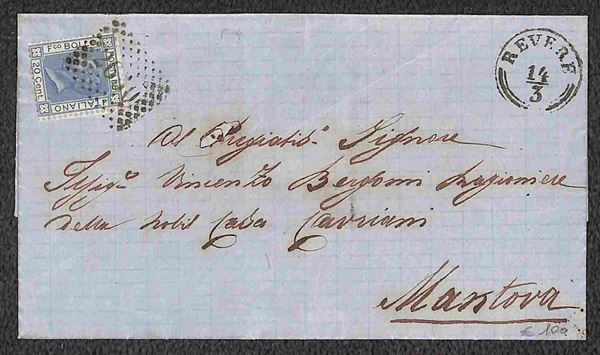 Fco BOLLO
20 Cent.
ITALIANO
REVERE
14
3
Al Pregiatis. Signore
Sig. Vincenzo Bergomi Ragioniere
della Nobil Casa Cavriani
Mantova
£ 100